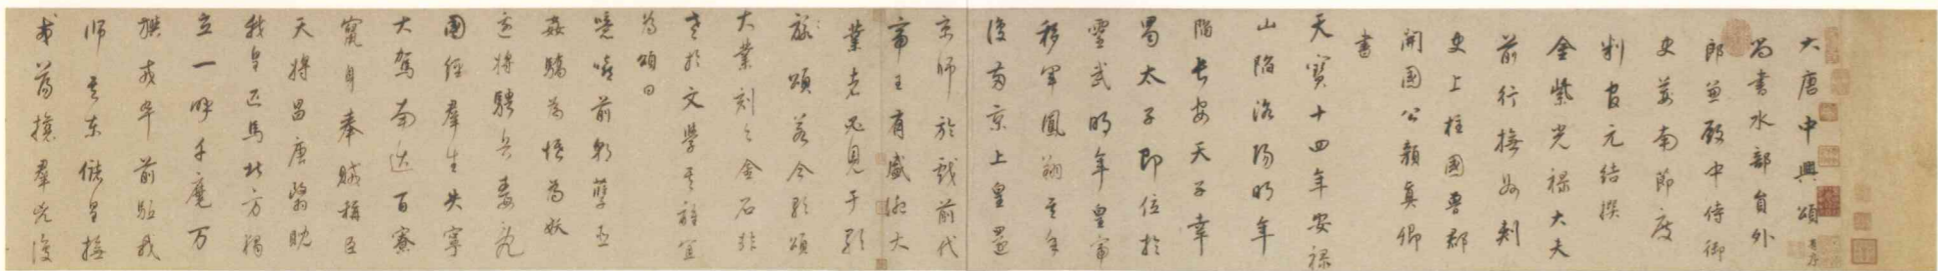 大唐中興頌 有序
尚書水部員外
郎兼殿中侍御
史荊南節度
判官元結撰
金紫光祿大夫
前行撫州刺
史上柱國魯郡
開國公顏真卿
書
天寶十四年安祿
山陷洛陽明年
陷長安天子幸
蜀太子即位於
靈武明年皇帝
移軍鳳翔其年
復兩京上皇還
京師於戲前代
帝王有盛德大
業者必見于歌
頌若今歌頌
大業刻之金石非
老於文學其誰宜
為頌曰
噫嘻前朝孽臣
姦驕為惛為妖
邊將騁兵毒亂
國經羣生失寧
大駕南巡百寮
竄身奉賊稱臣
天將昌唐繄睨
我皇匹馬北方獨
立一呼千麾万
旟戎卒前驅我
師其東儲皇撫
戎蕩攘羣兇復